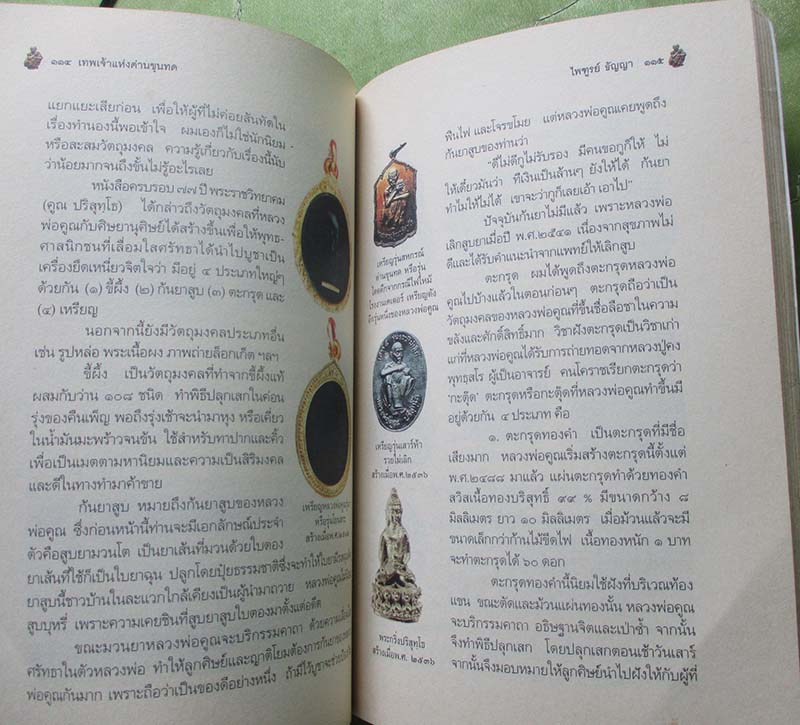 ๑๑๔ เทพเจ้าแห่งด่านขุนทด
แยกแยะเสียก่อน เพื่อให้ผู้ที่ไม่ค่อยสันทัดใน
เรื่องทำนองนี้พอเข้าใจ ผมเองก็ไม่ใช่นักนิยม
หรือสะสมวัตถุมงคล ความรู้เกี่ยวกับเรื่องนี้นับ
ว่าน้อยมากจนถึงขั้นไม่รู้อะไรเลย
หนังสือครบรอบ ๗๗ ปี พระราชวิทยาคม
(คูณ ปริสุทฺโธ) ได้กล่าวถึงวัตถุมงคลที่หลวง
พ่อคูณกับศิษยานุศิษย์ได้สร้างขึ้นเพื่อให้พุทธ-
ศาสนิกชนที่เลื่อมใสศรัทธาได้นำไปบูชาเป็น
เครื่องยึดเหนี่ยวจิตใจว่า มีอยู่ ๔ ประเภทใหญ่ๆ
ด้วยกัน (๑) ขี้ผึ้ง (๒) กันยาสูบ (๓) ตะกรุด และ
(๔) เหรียญ
นอกจากนี้ยังมีวัตถุมงคลประเภทอื่น
เช่น รูปหล่อ พระเนื้อผง ภาพถ่ายล็อกเก็ต ฯลฯ
ขี้ผึ้ง เป็นวัตถุมงคลที่ทำจากขี้ผึ้งแท้
ผสมกับว่าน ๑๐๘ ชนิด ทำพิธีปลุกเสกในค่อน
รุ่งของคืนเพ็ญ พอถึงรุ่งเช้าจะนำมาหุง หรือเคี่ยว
ในน้ำมันมะพร้าวจนข้น ใช้สำหรับทาปากและคิ้ว
เพื่อเป็นเมตตามหานิยมและความเป็นสิริมงคล
และดีในทางทำมาค้าขาย
กันยาสูบ หมายถึงกันยาสูบของหลวง
พ่อคูณ ซึ่งก่อนหน้านี้ท่านจะมีเอกลักษณ์ประจำ
ตัวคือสูบยามวนโต เป็นยาเส้นที่มวนด้วยใบตอง
ยาเส้นที่ใช้ก็เป็นใบยาฉุน ปลูกโดยปุ๋ยธรรมชาติซึ่งจะทำให้ใบยามี
ยาสูบนี้ชาวบ้านในละแวกใกล้เคียงเป็นผู้นำมาถวาย หลวงพ่อคูณ
สูบบุหรี่ เพราะความเคยชินที่สูบยาสูบใบตองมาตั้งแต่อดีต
ขณะมวนยาหลวงพ่อคูณจะบริกรรมคาถา ด้วยความ
ศรัทธาในตัวหลวงพ่อ ทำให้ลูกศิษย์และญาติโยมต้องการกันยาของ
พ่อคูณกันมาก เพราะถือว่าเป็นของดีอย่างหนึ่ง ถ้ามีไว้บูชาจะช่วย
เหรียญหลวงพ่อคูณ
หรือรุ่น
สร้างเมื่อพ.ศ.
ไพฑูรย์ ธัญญา ๑๑๕
เหรียญรุ่นสหกรณ์
ด่านขุนทด หรือรุ่น
โดดตึกจากกรณีไฟไหม้
โรงงานเคเดอร์ เหรียญดัง
อีกรุ่นหนึ่งของหลวงพ่อคูณ
เหรียญรุ่นเสาร์ห้า
รวยไม่เลิก
สร้างเมื่อพ.ศ.๒๕๓๖
พระกริ่งปริสุทฺโธ
สร้างเมื่อพ.ศ. ๒๕๓๖
ฟืนไฟ และโจรขโมย แต่หลวงพ่อคูณเคยพูดถึง
กันยาสูบของท่านว่า
"ดีไม่ดีกูไม่รับรอง มีคนขอกูก็ให้ ไม่
ให้เดี๋ยวมันว่า ทีเงินเป็นล้านๆ ยังให้ได้ กันยา
ทำไมให้ไม่ได้ เขาจะว่ากูก็เลยเอ้า เอาไป"
ปัจจุบันกันยาไม่มีแล้ว เพราะหลวงพ่อ
เลิกสูบยาเมื่อปี พ.ศ.๒๕๔๑ เนื่องจากสุขภาพไม่
ดีและได้รับคำแนะนำจากแพทย์ให้เลิกสูบ
ตะกรุด ผมได้พูดถึงตะกรุดหลวงพ่อ
คูณไปบ้างแล้วในตอนก่อนๆ ตะกรุดถือว่าเป็น
วัตถุมงคลของหลวงพ่อคูณที่ขึ้นชื่อลือชาในความ
ขลังและศักดิ์สิทธิ์มาก วิชาฝังตะกรุดเป็นวิชาเก่า
แก่ที่หลวงพ่อคูณได้รับการถ่ายทอดจากหลวงปู่คง
พุทฺธสโร ผู้เป็นอาจารย์ คนโคราชเรียกตะกรุดว่า
'กะตุ๊ด' ตะกรุดหรือกะตุ๊ดที่หลวงพ่อคูณทำขึ้นมี
อยู่ด้วยกัน ๔ ประเภท คือ
๑. ตะกรุดทองคำ เป็นตะกรุดที่มีชื่อ
เสียงมาก หลวงพ่อคูณเริ่มสร้างตะกรุดนี้ตั้งแต่
พ.ศ.๒๔๘๘ มาแล้ว แผ่นตะกรุดทำด้วยทองคำ
สวิสเนื้อทองบริสุทธิ์ ๙๙ % มีขนาดกว้าง ๘
มิลลิเมตร ยาว ๑๐ มิลลิเมตร เมื่อม้วนแล้วจะมี
ขนาดเล็กกว่าก้านไม้ขีดไฟ เนื้อทองหนัก ๑ บาท
จะทำตะกรุดได้ ๖๐ ดอก
ตะกรุดทองคำนี้นิยมใช้ฝังที่บริเวณท้อง
แขน ขณะตัดและม้วนแผ่นทองนั้น หลวงพ่อคูณ
จะบริกรรมคาถา อธิษฐานจิตและเป่าซ้ำ จากนั้น
จึงทำพิธีปลุกเสก โดยปลุกเสกตอนเช้าวันเสาร์
จากนั้นจึงมอบหมายให้ลูกศิษย์นำไปฝังให้กับผู้ที่